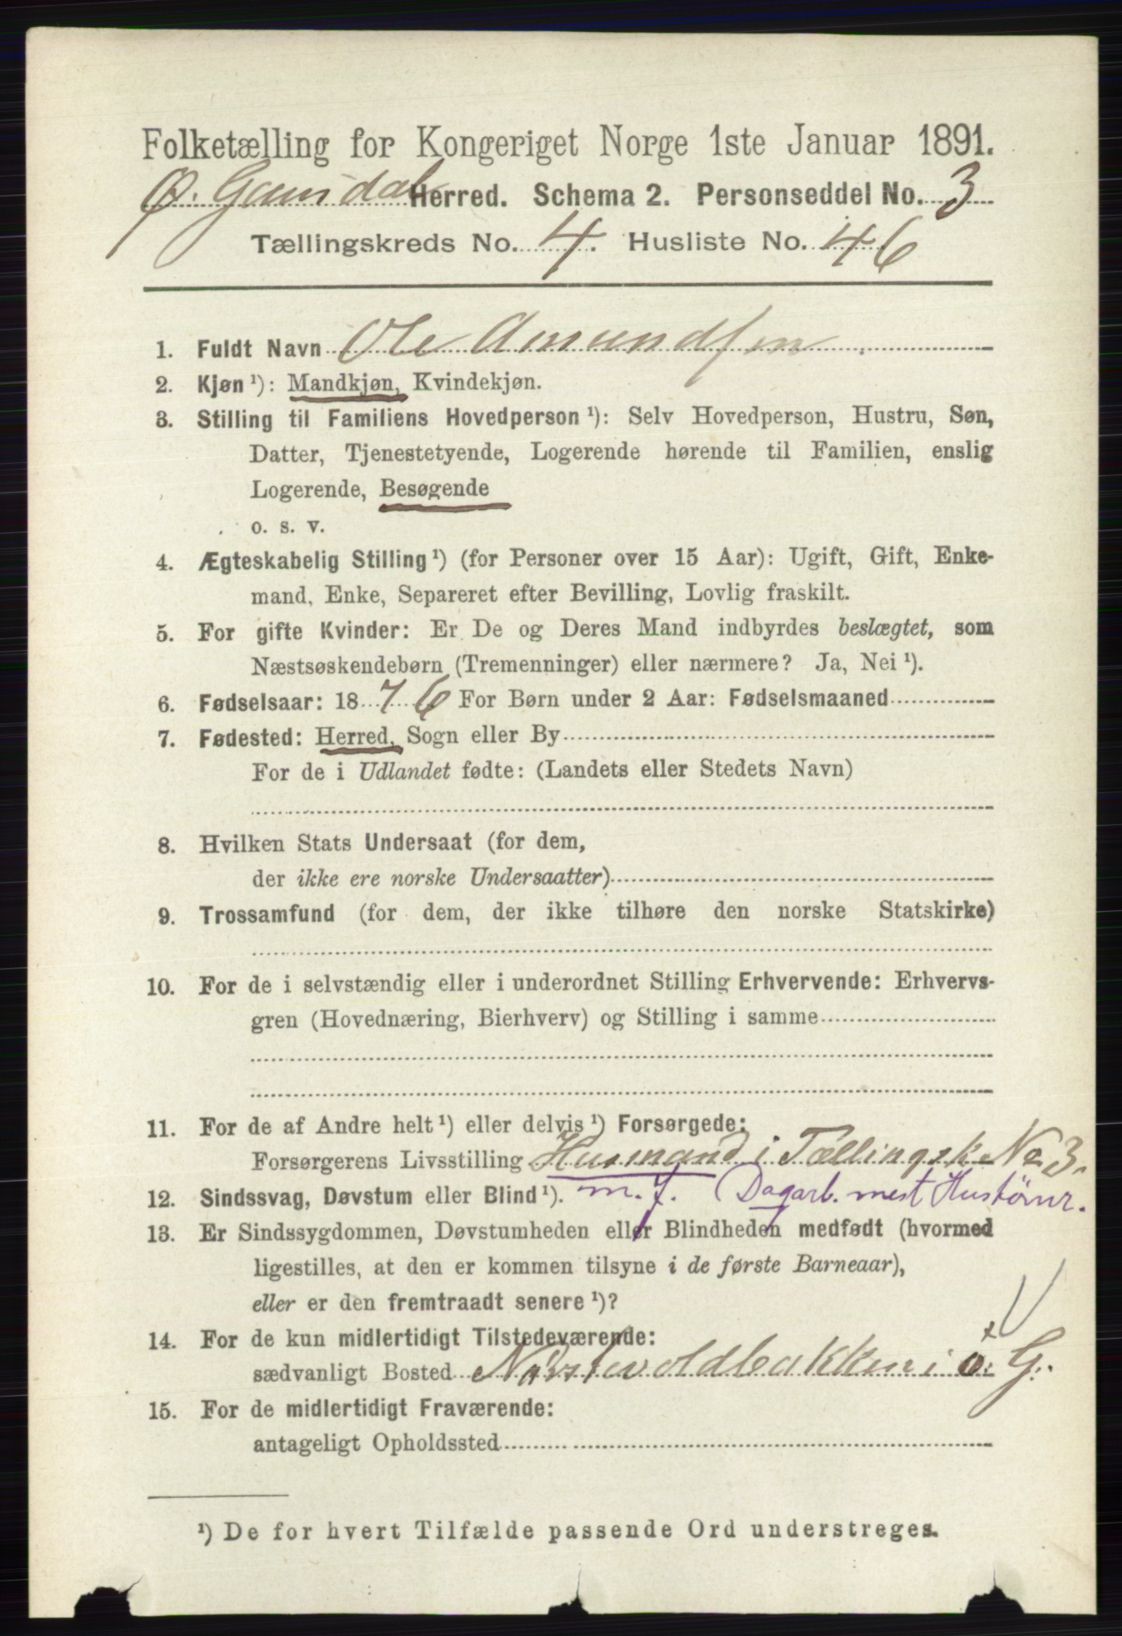 Folketælling for Kongeriget Norge 1ste Januar 1891.
Ø. Gausdal Herred. Schema 2. Personseddel No. 3
Tællingskreds No. 4. Husliste No. 46
1. Fuldt Navn Ole Amundsen
2. Kjøn ¹): Mandkjøn, Kvindekjøn.
3. Stilling til Familiens Hovedperson ¹): Selv Hovedperson, Hustru, Søn,
Datter, Tjenestetyende, Logerende hørende til Familien, enslig
Logerende, Besøgende
o. s. v.
4. Ægteskabelig Stilling ¹) (for Personer over 15 Aar): Ugift, Gift, Enke-
mand, Enke, Separeret efter Bevilling, Lovlig fraskilt.
5. For gifte Kvinder: Er De og Deres Mand indbyrdes beslægtet, som
Næstsøskendebørn (Tremenninger) eller nærmere? Ja, Nei ¹).
6. Fødselsaar: 1876 For Børn under 2 Aar: Fødselsmaaned
7. Fødested: Herred, Sogn eller By
For de i Udlandet fødte: (Landets eller Stedets Navn)
8. Hvilken Stats Undersaat (for dem,
der ikke ere norske Undersaatter)
9. Trossamfund (for dem, der ikke tilhøre den norske Statskirke)
10. For de i selvstændig eller i underordnet Stilling Erhvervende: Erhvervs-
gren (Hovednæring, Bierhverv) og Stilling i samme
11. For de af Andre helt ¹) eller delvis ¹) Forsørgede:
Forsørgerens Livsstilling Husmand i Tællingsk No 3.
12. Sindssvag, Døvstum eller Blind ¹). m. J. (Dagarb. mest Hustømr.
13. Er Sindssygdommen, Døvstumheden eller Blindheden medfødt (hvormed
ligestilles, at den er kommen tilsyne i de første Barneaar),
eller er den fremtraadt senere ¹)?
14. For de kun midlertidigt Tilstedeværende:
sædvanligt Bosted i ø. G.
15. For de midlertidigt Fraværende:
antageligt Opholdssted
¹) De for hvert Tilfælde passende Ord understreges.